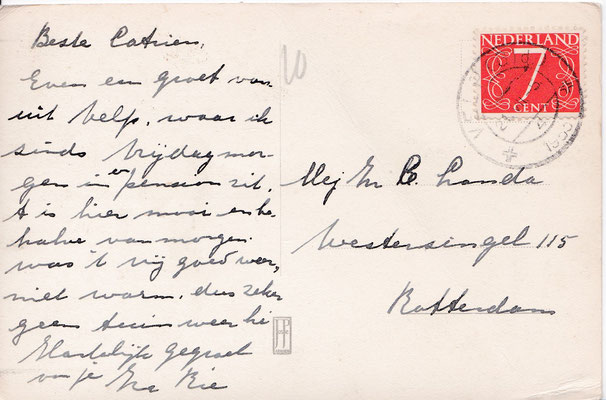 Beste Catrien,
Even een groet van-
uit Velp, waar ik
sinds Vrijdagmor-
gen in een pension zit.
't is hier mooi en be
halve van morgen
was 't vrij goed weer,
niet warm, dus zeker
geen tuinweer hè
Hartelijk gegroet
van je Rie
10
NEDERLAND
7
CENT
Mej C. Landa
Westersingel 115
Rotterdam